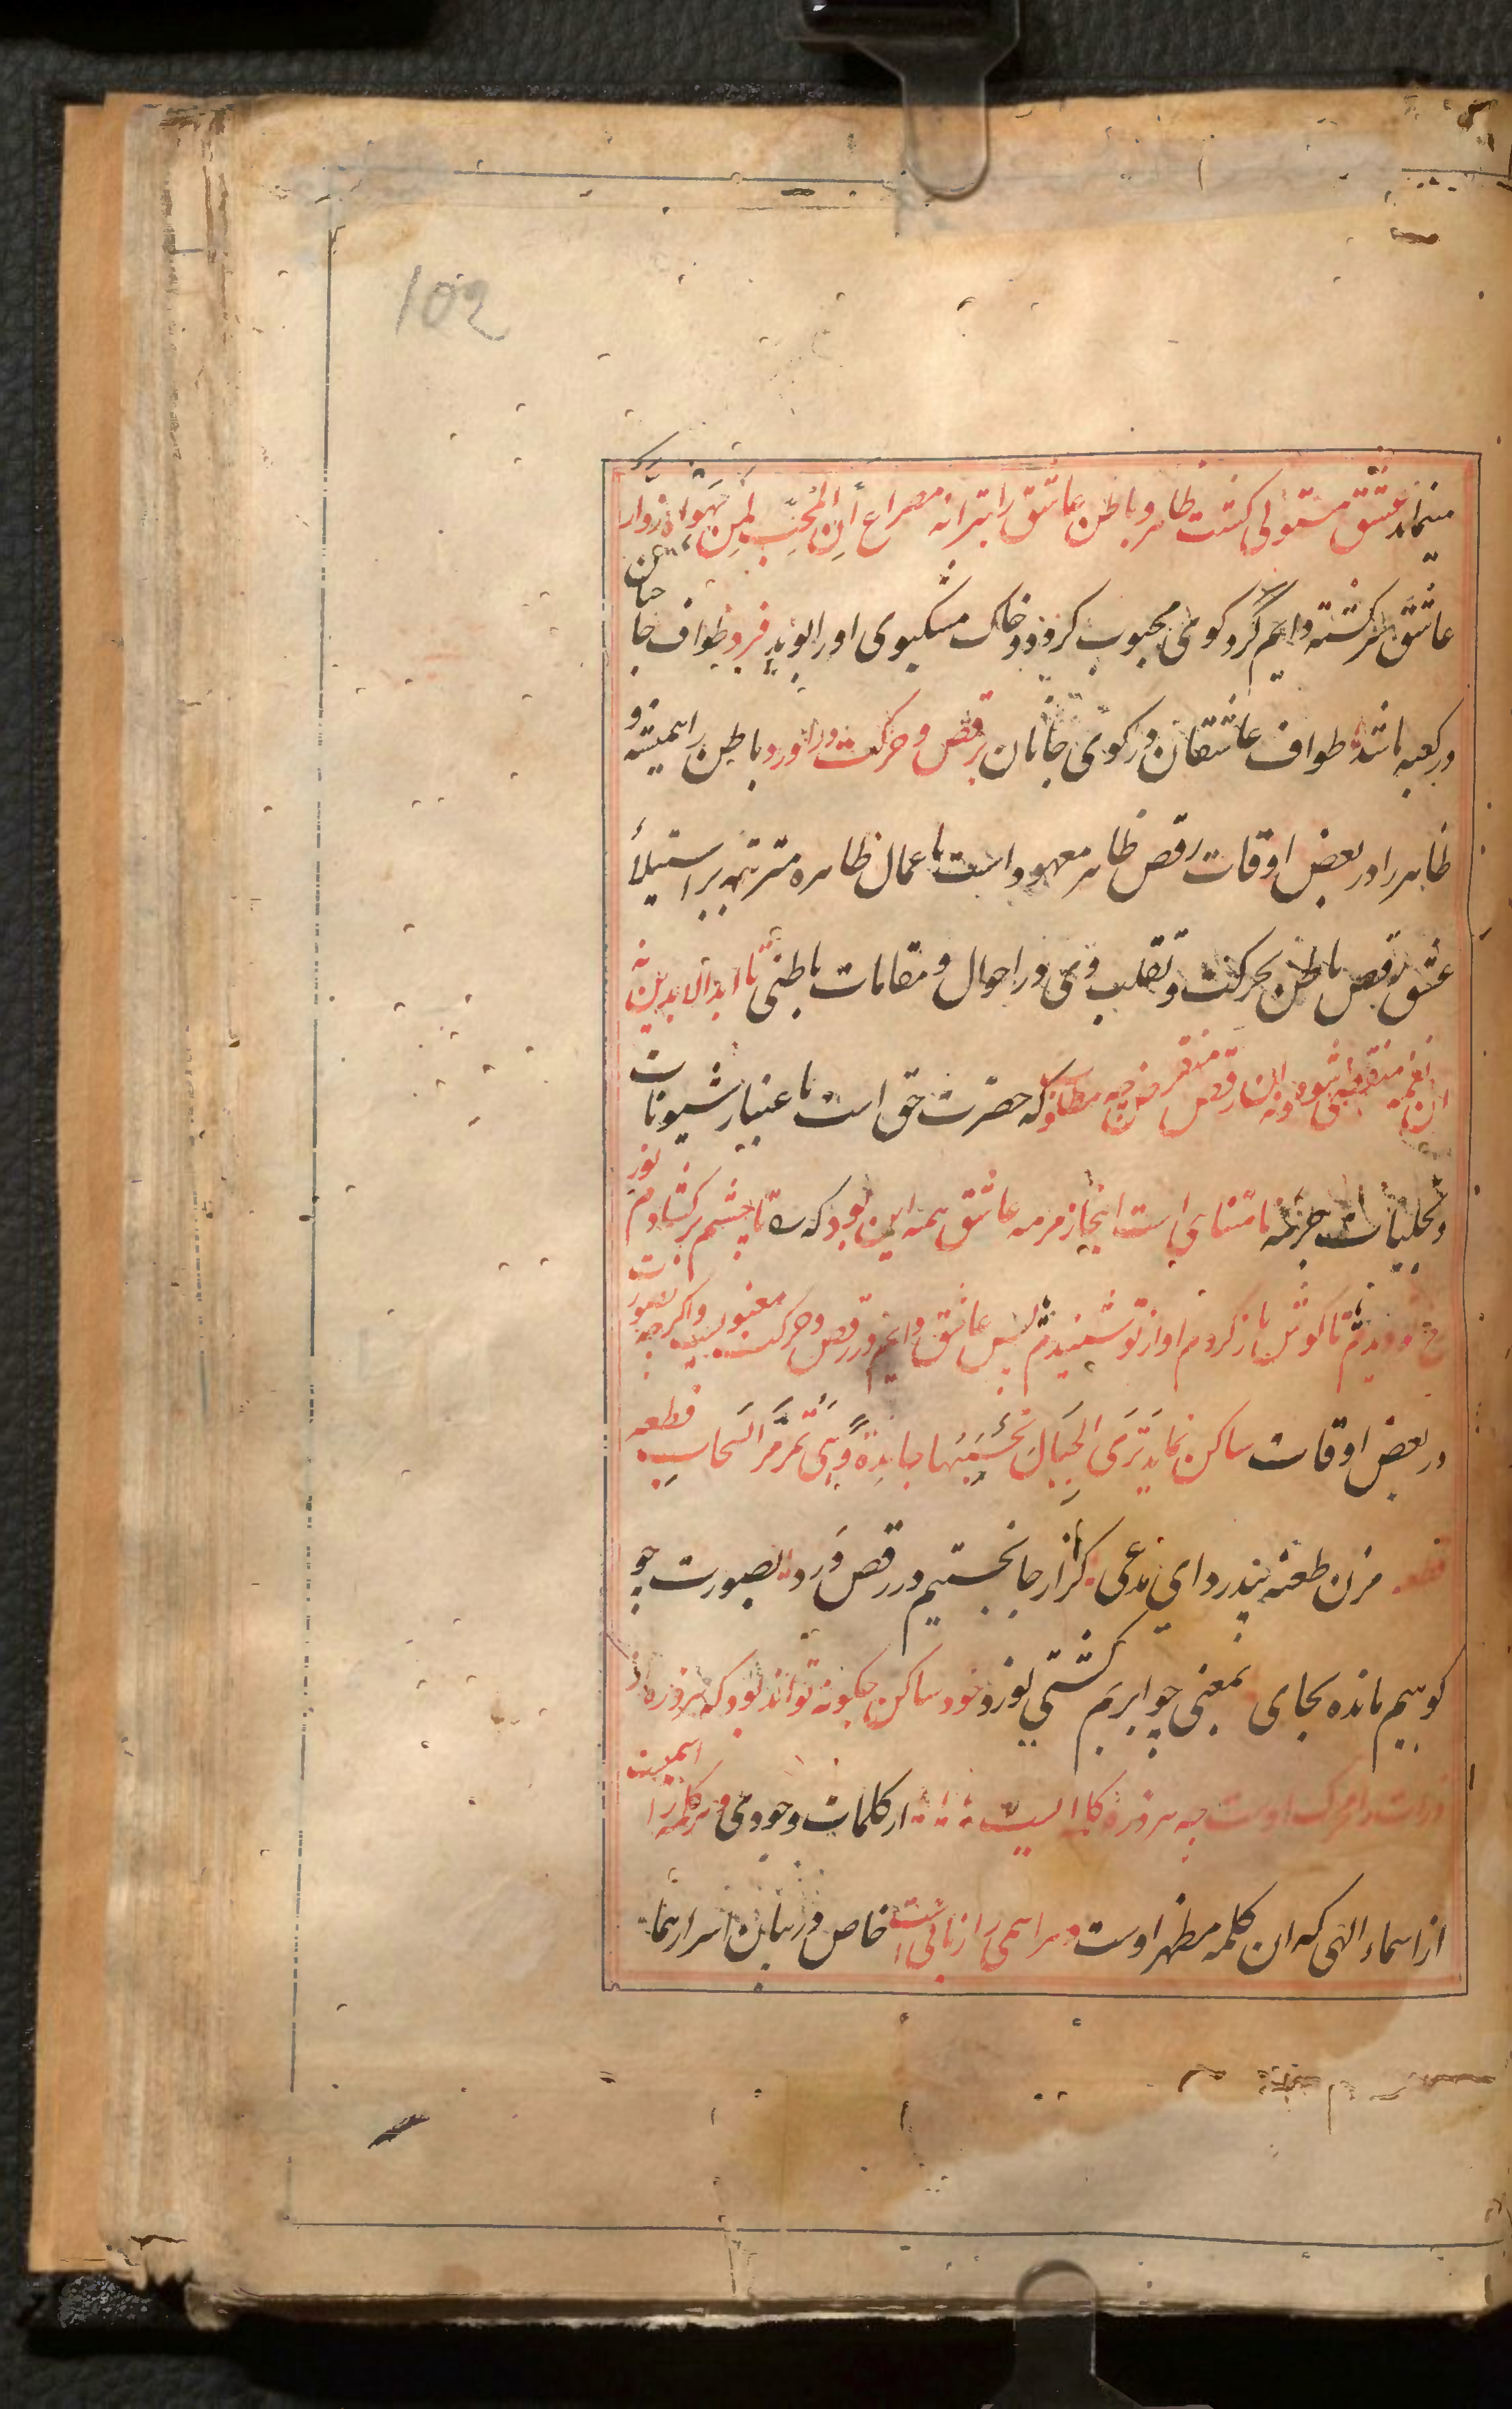 102
مینماید عشق مستولی گشت ظاهر و باطن عاشق را بترانه مصراع اِنّ المُحِبَّ لِمَن یَهواه زوّار
عاشق سرگشته دایم گرد کوی محبوب گردد و خاک مشکبوی او را بوید فرد طواف حاجیان
در کعبه باشد طواف عاشقان در کوی جانان برقص و حرکت دراورد باطن را همیشه و
ظاهر را در بعض اوقات رقص ظاهر معهود است باعمال ظاهره مترتبه بر استیلأ
عشق و رقص باطن بحرکت و تقلب وی در احوال و مقامات باطنی تا ابد الابدین نه
ان نغمه منقضی شود و نه این رقص منقرض چه مطلوب که حضرت حق است باعتبار شیونات
و تجلیات جزئیه نامتناهی است اینجا زمزمه عاشق همه این بود که تا چشم برگشادم نور
رخ تو دیدم تا گوش باز کردم اواز تو شنیدم پس عاشق دایم در رقص و حرکت معنویست و اگرچه بصورت
در بعض اوقات ساکن نماید تَرَی الجِبَالَ تَحسَبُهَا جامِدَةً وَهِیَ تَمُرُّ مَرَّ السَّحابِ قطعه
قطعه مزن طعنه بیدرد ای مدعی گر از جا نجستیم در رقص و رد بصورت چو
کوهیم مانده بجای بمعنی چو ابریم گیتی نورد خود ساکن چگونه تواند بود که هر ذره از
ذرات را محرک اوست چه هر ذره کلمه ایست از کلمات وجودی و هر کلمه را اسمیست
از اسماء الهی که ان کلمه مظهر اوست و هر اسمی را زبانی است خاص در بیان اسرار نما